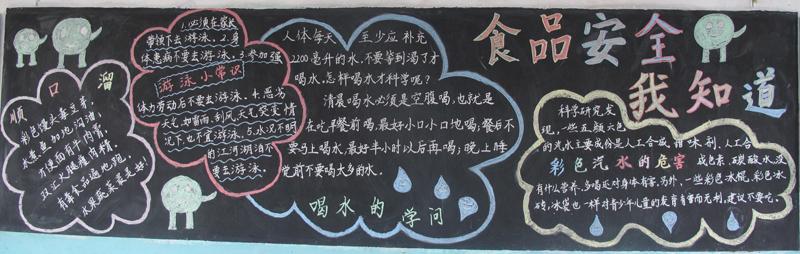 顺口溜
彩色馒头毒豆芽,
水煮鱼加地沟油,
方便面有牛肉膏,
双汇火腿瘦肉精,
有毒食品遍地现,
1.必须在家长
带领下去游泳。2.身
体患病不要去游泳。3.参加强
游泳小常识
体力劳动后不要去游泳。4.恶劣
天气如雷雨、刮风、天气突变情
况下,也不宜游泳。5.水况不明
的江河湖泊不
要去游泳。
人体每天 至少应补充
2200毫升的水,不要等到渴了才
喝水,怎样喝水才科学呢?
清晨喝水必须是空腹喝,也就是
在吃早餐前喝,最好小口小口地喝;餐后不
要马上喝水,最好半小时以后再喝;晚上睡
觉前不要喝太多的水。
喝水的学问
食品安全
我知道
科学研究发
现,一些五颜六色
的汽水主要成份是人工合成甜味剂、人工合
彩色汽水的危害
成色素、碳酸水,没
有什么营养,多喝还对身体有害。另外,一些彩色冰棍、彩色冰
砖、冰袋也一样对青少年儿童的发育有害而无利,建议不要吃。